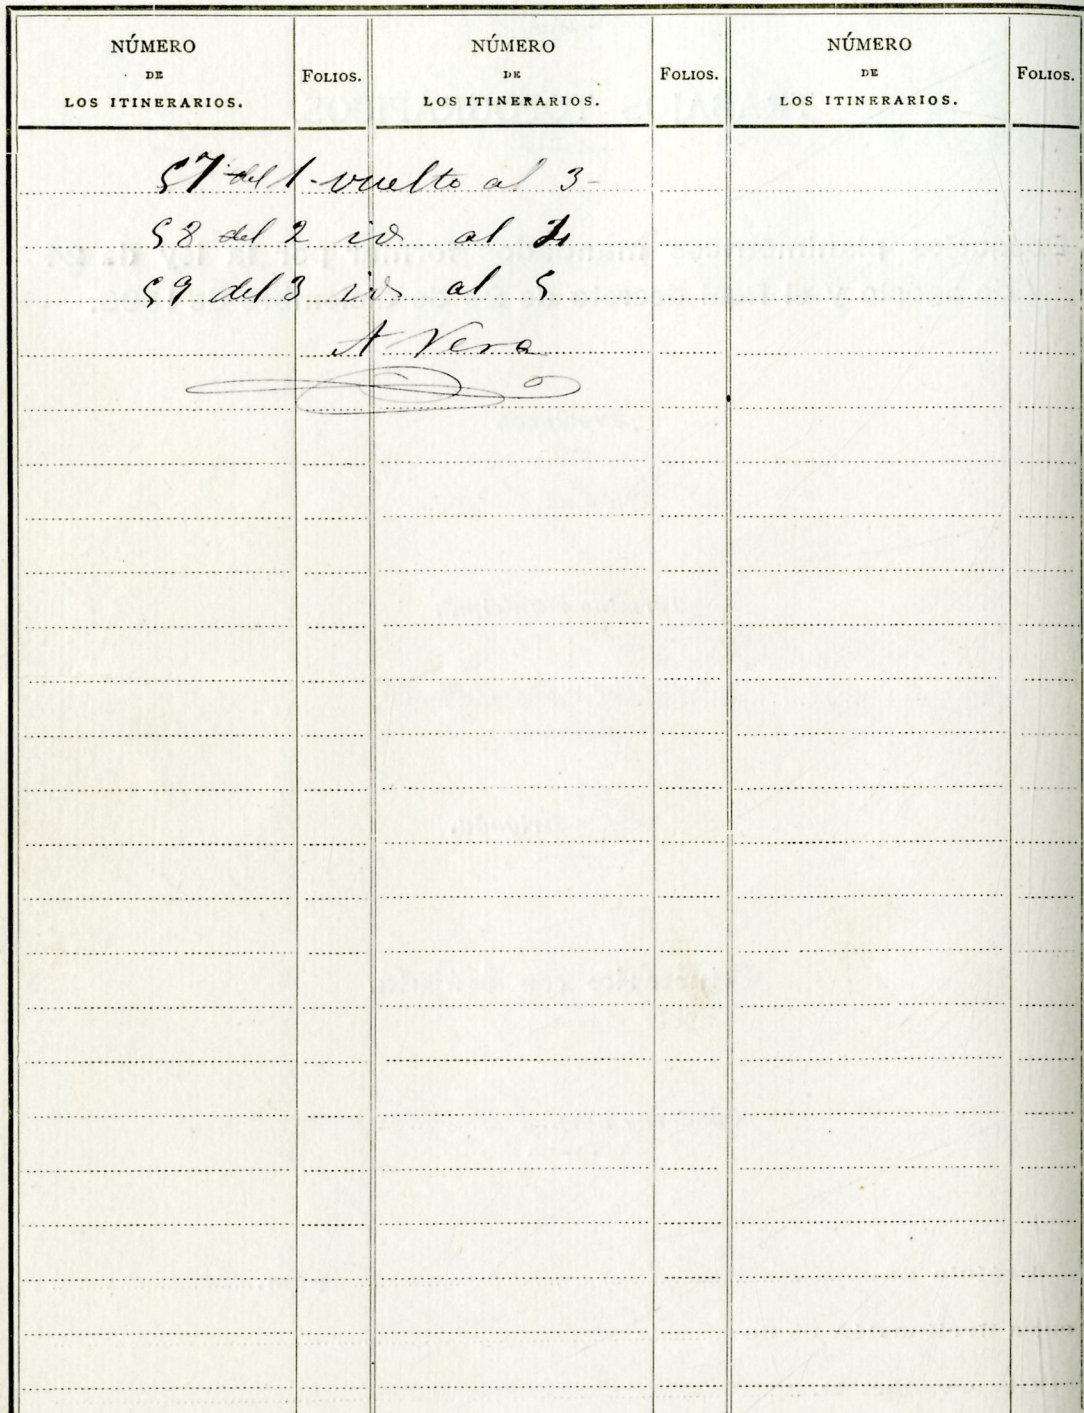 NÚMERO DE LOS ITINERARIOS. FOLIOS. NÚMERO DE LOS ITINERARIOS. FOLIOS. NÚMERO DE LOS ITINERARIOS. FOLIOS.
57 del 1 vuelto al 3-
58 del 2 id al
59 del 3 id al 5
A Vera